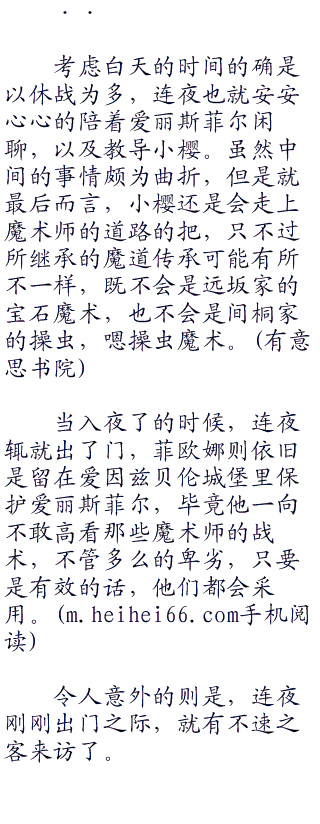 . .
考虑白天的时间的确是
以休战为多，连夜也就安安
心心的陪着爱丽斯菲尔闲
聊，以及教导小樱。虽然中
间的事情颇为曲折，但是就
最后而言，小樱还是会走上
魔术师的道路的把，只不过
所继承的魔道传承可能有所
不一样，既不会是远坂家的
宝石魔术，也不会是间桐家
的操虫，嗯操虫魔术。(有意
思书院)
当入夜了的时候，连夜
辄就出了门，菲欧娜则依旧
是留在爱因兹贝伦城堡里保
护爱丽斯菲尔，毕竟他一向
不敢高看那些魔术师的战
术，不管多么的卑劣，只要
是有效的话，他们都会采
用。(m.heihei66.com手机阅
读)
令人意外的则是，连夜
刚刚出门之际，就有不速之
客来访了。